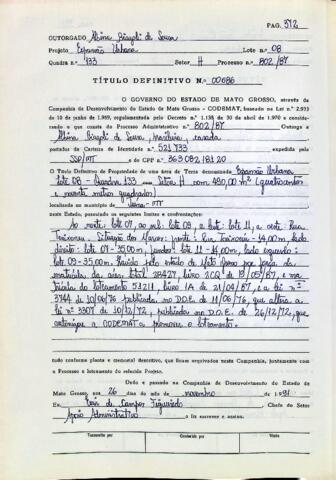 PAG. 372
OUTORGADO
de Souza
Projeto Expansão Urbana Lote n.º 08
Quadra n.º 433 Setor H Processo n.º 802/87
TÍTULO DEFINITIVO N.º 00686
O GOVERNO DO ESTADO DE MATO GROSSO, através da
Companhia de Desenvolvimento do Estado de Mato Grosso - CODEMAT, baseado na Lei n.º 2.933
de 10 de junho de 1.969, regulamentada pelo Decreto N.º 1.138 de 30 de abril de 1.970 e conside-
rando o que consta do Processo Administrativo n.º 802/87 Outorga a
de Souza, brasileira, casada
portador da Carteira de Identidade n.º 521733 expedida pela
SSP/MT e do CPF n.º 363 082 181 20
O Título Definitivo de Propriedade de uma área de Terra denominada Expansão Urbana
lote 08 - Quadra 433 Setor H com 490,00 m² (quatrocentos
e noventa metros quadrados)
localizado no município de MT
neste Estado, passado os seguintes limites e confrontações:
ao norte: lote 07, ao sul: lote 09, a este: lote 11, a oeste: Rua
Situação dos Marcos: frente: Rua 14,00m, lado
direito: lote 07 - 35,00m, fundos: lote 11 - 14,00m lado esquerdo:
lote 09 - 35,00m. Havido pelo estado de Mato Grosso por força da
matrícula da área total 28427, livro 2CQ de 19/05/87, e ma
trícula do loteamento 53211, livro 1A de 21/04/87, e a lei nº
3744 de 10/06/76 publicada no D.O.E. de 11/06/76, que altera a
lei nº 3307 de 10/12/72, publicada no D.O.E. de 26/12/72, que
autoriza a CODEMAT a promover o loteamento.
tudo conforme planta e memorial descritivo, que foram arquivados nesta Companhia, juntamente com
o Processo e loteamento do referido Projeto.
Dado e passado na Companhia de Desenvolvimento do Estado de
Mato Grosso, aos 26 dias do mês de novembro de 1.991.
Eu, de Campos Figueiredo Chefe do Setor
Apoio Administrativo o fiz escrever e assino.
Transcrito por Conferido por Visto